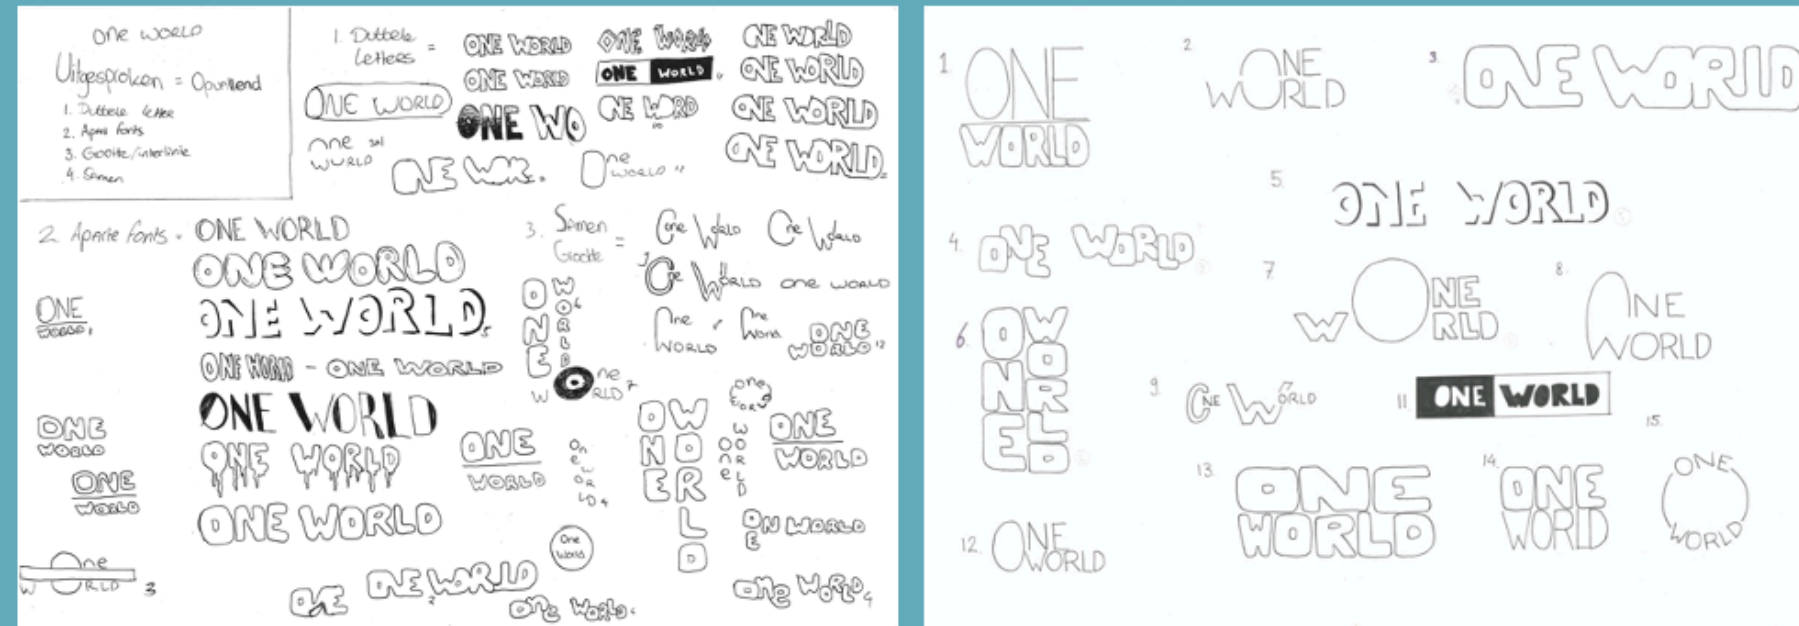 one world
Uitgesproken = Opvallend
1. Dubbele letter
2. Aparte fonts
3. Grootte/interlinie
4. Samen
1. Dubbele
letters =
ONE WORLD
ONE WORLD
ONE WO
ONE WORLD
ONE WORLD
ONE WORLD
ONE WORLD
ONE WORLD
ONE WORLD
ONE WORLD
ONE WORLD
one
WORLD
ONE WOR.
One
WORLD 11
2. Aparte fonts =
ONE WORLD
ONE WORLD
ONE WORLD 5
ONE WORLD - ONE WORLD
ONE WORLD
ONE WORLD
ONE WORLD
ONE
WORLD 1
ONE
WORLD
ONE
WORLD
One
WORLD 3
3. Samen
Grootte =
One World
One World
One World
one world
One
World
One
World
ONE
WORLD 12
ONE
WORLD 6
One
WORLD 7
ONE
WORLD
one
world
ONE
WORLD
one
world 4
ONE
WORLD
one
WORLD
ONE
WORLD
ONE WORLD
One
World
ONE
ONE WORLD 2
One World 4
One World 4
1. ONE
WORLD
2. ONE
WORLD
3. ONE WORLD
4. ONE WORLD
5. ONE WORLD
6. ONE
WORLD
7. ONE
WORLD
8. ONE
WORLD
9. ONE WORLD
11 ONE WORLD
12. ONE
WORLD
13. ONE
WORLD
14. ONE
WORLD
15. ONE
WORLD